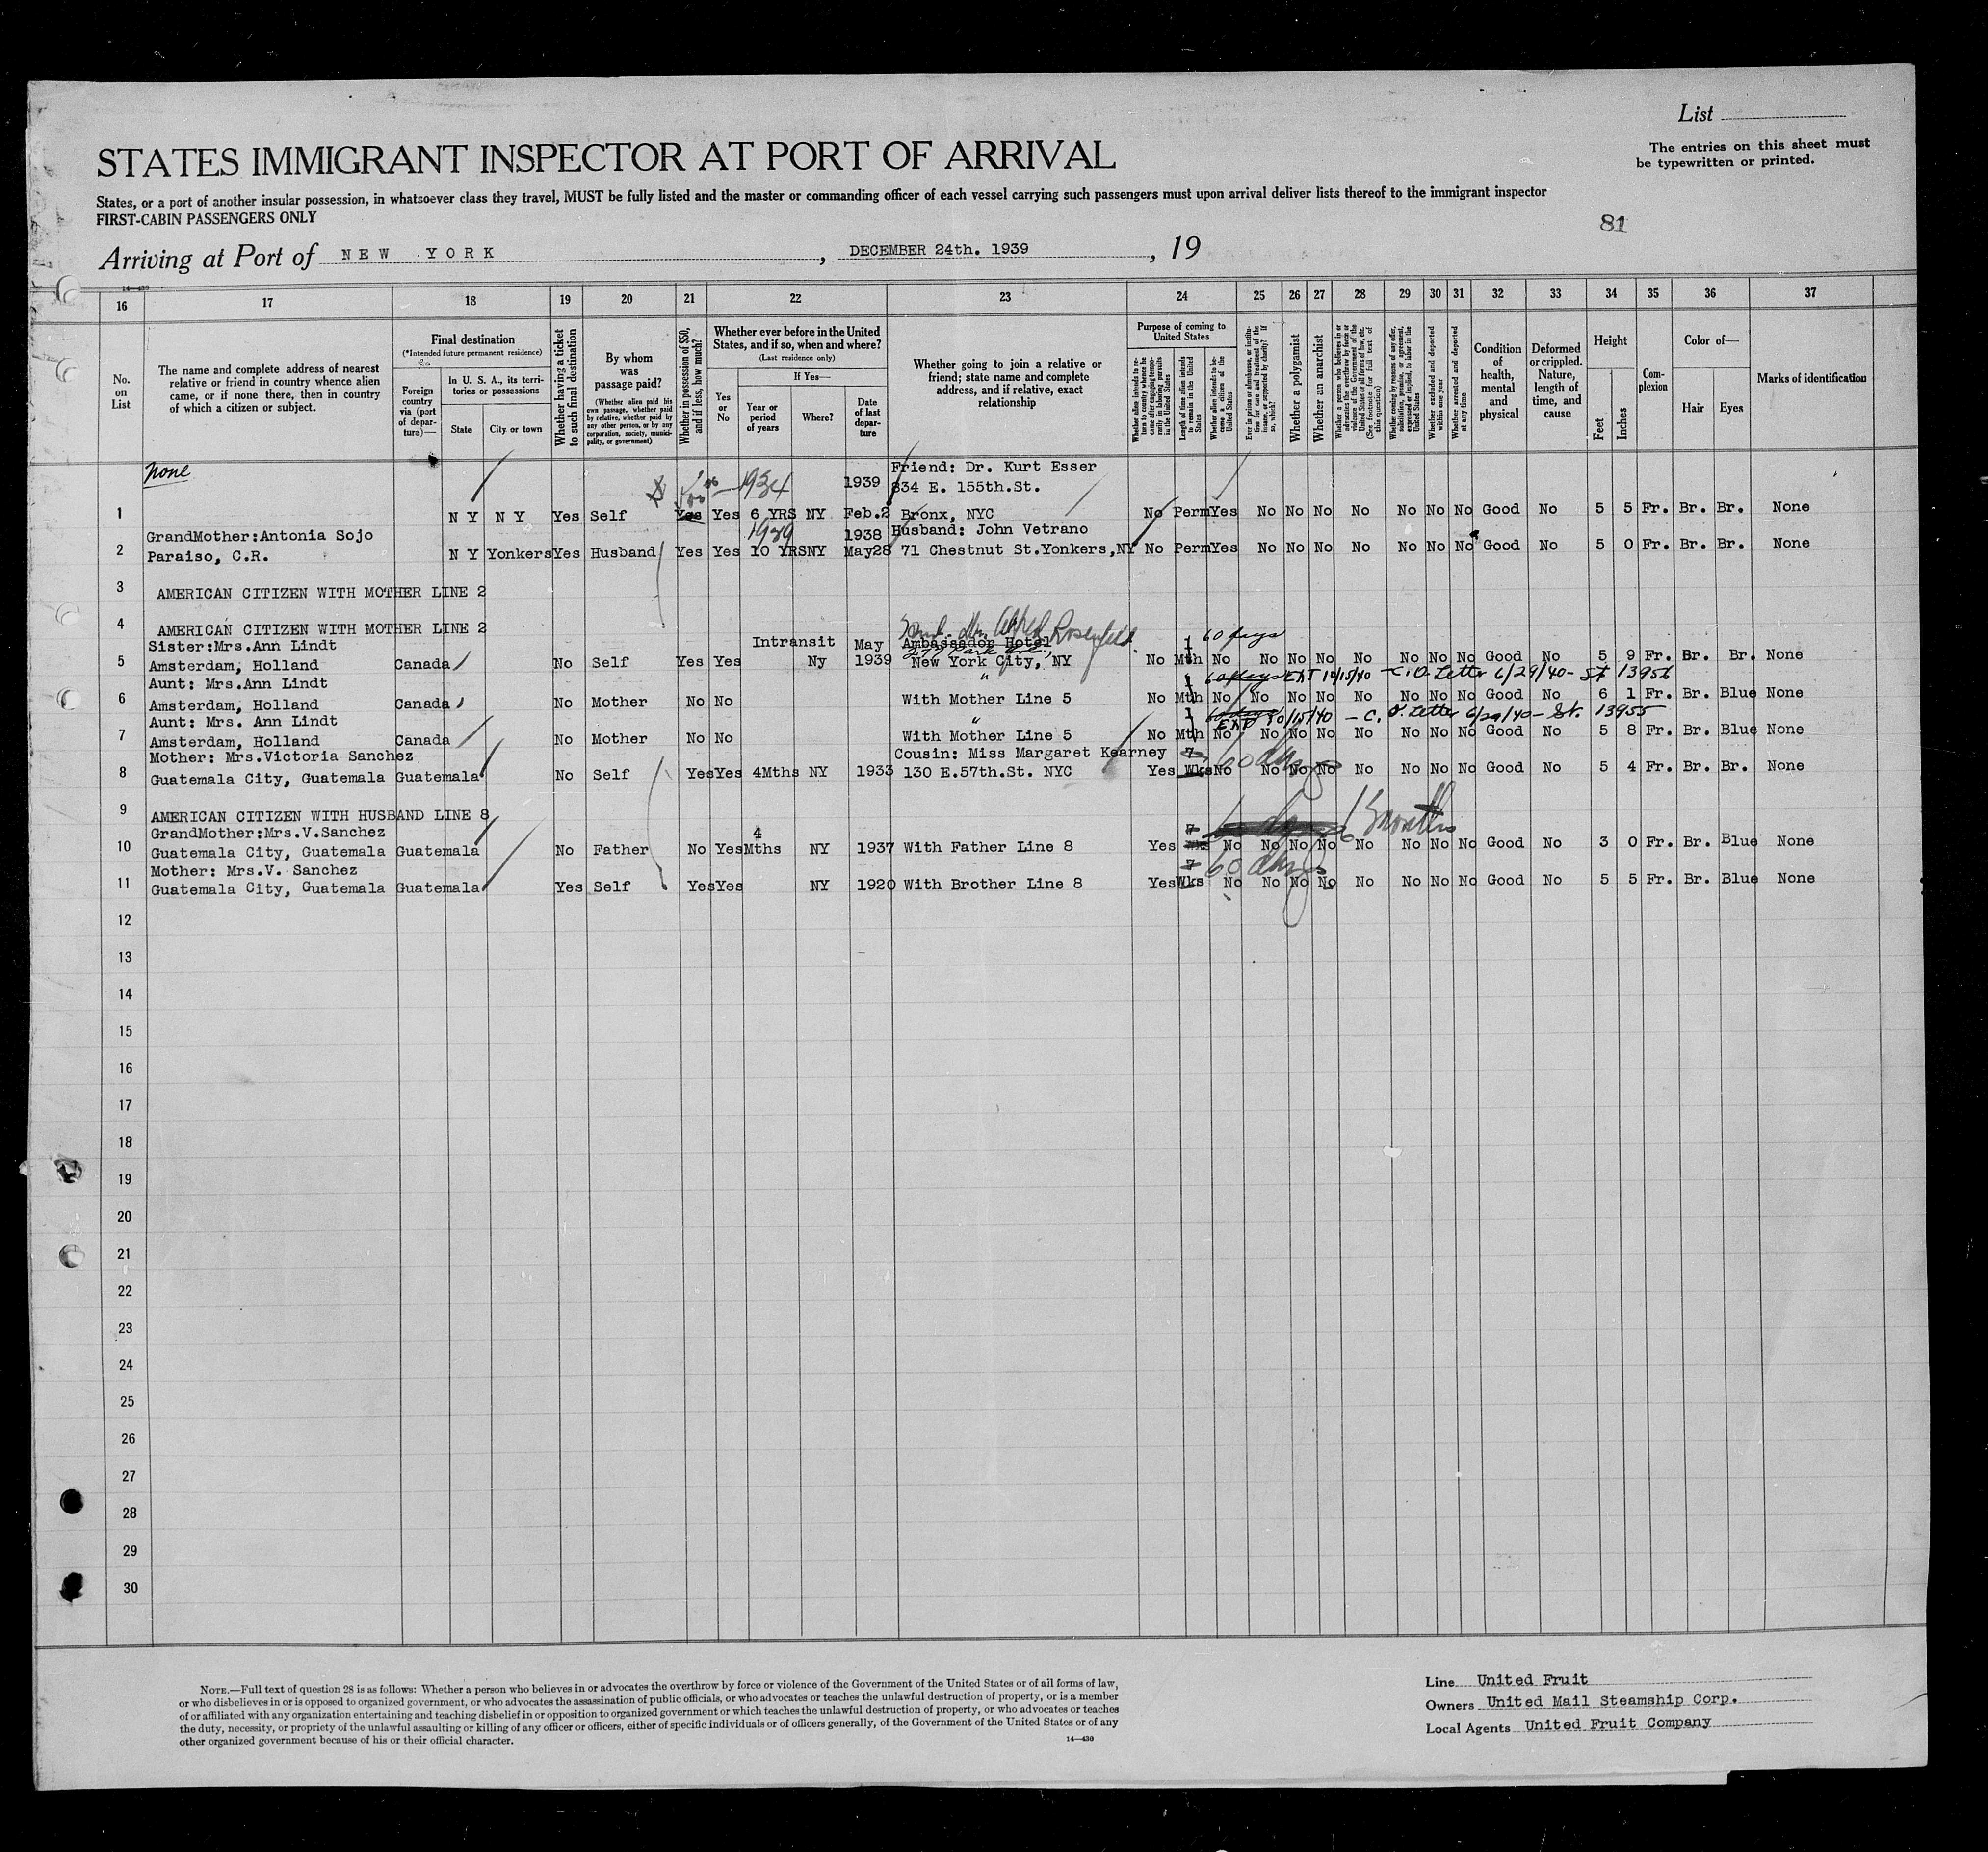 List
The entries on this sheet must
be typewritten or printed.
STATES IMMIGRANT INSPECTOR AT PORT OF ARRIVAL
States, or a port of another insular possession, in whatsoever class they travel, MUST be fully listed and the master or commanding officer of each vessel carrying such passengers must upon arrival deliver lists thereof to the immigrant inspector
FIRST-CABIN PASSENGERS ONLY
81
Arriving at Port of NEW YORK , DECEMBER 24th. 1939 , 19
14—430
16 17 18 19 20 21 22 23 24 25 26 27 28 29 30 31 32 33 34 35 36 37
No. on List
The name and complete address of nearest
relative or friend in country whence alien
came, or if none there, then in country
of which a citizen or subject.
Final destination
(*Intended future permanent residence)
Foreign country via (port of departure)—
In U. S. A., its territories or possessions
State
City or town
Whether having a ticket to such final destination
By whom was passage paid?
(Whether alien paid his own passage, whether paid by relative, whether paid by any other person, or by any corporation, society, municipality, or government)
Whether in possession of $50, and if less, how much?
Whether ever before in the United
States, and if so, when and where?
(Last residence only)
Yes or No
If Yes—
Year or period of years
Where?
Date of last departure
Whether going to join a relative or
friend; state name and complete
address, and if relative, exact
relationship
Purpose of coming to United States
Whether alien intends to return to country whence he came after engaging temporarily in laboring pursuits in the United States
Length of time alien intends to remain in the United States
Whether alien intends to become a citizen of the United States
Ever in prison or almshouse, or institution for care and treatment of the insane, or supported by charity? If so, which?
Whether a polygamist
Whether an anarchist
Whether a person who believes in or advocates the overthrow by force or violence of the Government of the United States or all forms of law, etc. (See footnote for full text of this question)
Whether coming by reasons of any offer, solicitation, promise, or agreement, expressed or implied, to labor in the United States
Whether excluded and deported within one year
Whether arrested and deported at any time
Condition of health, mental and physical
Deformed or crippled. Nature, length of time, and cause
Height
Feet
Inches
Complexion
Color of—
Hair
Eyes
Marks of identification
none
1934
1939
Friend: Dr. Kurt Esser
834 E. 155th.St.
1 N Y N Y Yes Self Yes Yes 6 YRS NY Feb.2 Bronx, NYC No Perm Yes No No No No No No No Good No 5 5 Fr. Br. Br. None
GrandMother:Antonia Sojo 1929 1938 Husband: John Vetrano
2 Paraiso, C.R. N Y Yonkers Yes Husband Yes Yes 10 YRS NY May28 71 Chestnut St.Yonkers,NY No Perm Yes No No No No No No No Good No 5 0 Fr. Br. Br. None
3 AMERICAN CITIZEN WITH MOTHER LINE 2
4 AMERICAN CITIZEN WITH MOTHER LINE 2
Alfred Rosenfeld
Sister:Mrs.Ann Lindt Intransit May Ambassador Hotel 1 60 days
5 Amsterdam, Holland Canada No Self Yes Yes Ny 1939 New York City, NY No Mth No No No No No No No No Good No 5 9 Fr. Br. Br. None
Aunt: Mrs.Ann Lindt " 1 60 days EXT 10/15/40 - C.O. Letter 6/29/40 - St 13956
6 Amsterdam, Holland Canada No Mother No No With Mother Line 5 No Mth No No No No No No No No Good No 6 1 Fr. Br. Blue None
Aunt: Mrs. Ann Lindt " 1 60 days EXT 10/15/40 - C.O. Letter 6/29/40 - St. 13955
7 Amsterdam, Holland Canada No Mother No No With Mother Line 5 No Mth No No No No No No No No Good No 5 8 Fr. Br. Blue None
Mother: Mrs.Victoria Sanchez Cousin: Miss Margaret Kearney 7 60 days
8 Guatemala City, Guatemala Guatemala No Self Yes Yes 4Mths NY 1933 130 E.57th.St. NYC Yes Wks No No No No No No No No Good No 5 4 Fr. Br. Br. None
9 AMERICAN CITIZEN WITH HUSBAND LINE 8
GrandMother:Mrs.V.Sanchez 4 7 months
10 Guatemala City, Guatemala Guatemala No Father No Yes Mths NY 1937 With Father Line 8 Yes Wks No No No No No No No No Good No 3 0 Fr. Br. Blue None
Mother: Mrs.V. Sanchez 7 60 days
11 Guatemala City, Guatemala Guatemala Yes Self Yes Yes NY 1920 With Brother Line 8 Yes Wks No No No No No No No No Good No 5 5 Fr. Br. Blue None
12
13
14
15
16
17
18
19
20
21
22
23
24
25
26
27
28
29
30
NOTE.—Full text of question 28 is as follows: Whether a person who believes in or advocates the overthrow by force or violence of the Government of the United States or of all forms of law,
or who disbelieves in or is opposed to organized government, or who advocates the assassination of public officials, or who advocates or teaches the unlawful destruction of property, or is a member
of or affiliated with any organization entertaining and teaching disbelief in or opposition to organized government or which teaches the unlawful destruction of property, or who advocates or teaches
the duty, necessity, or propriety of the unlawful assaulting or killing of any officer or officers, either of specific individuals or of officers generally, of the Government of the United States or of any
other organized government because of his or their official character.
14—430
Line United Fruit
Owners United Mail Steamship Corp.
Local Agents United Fruit Company